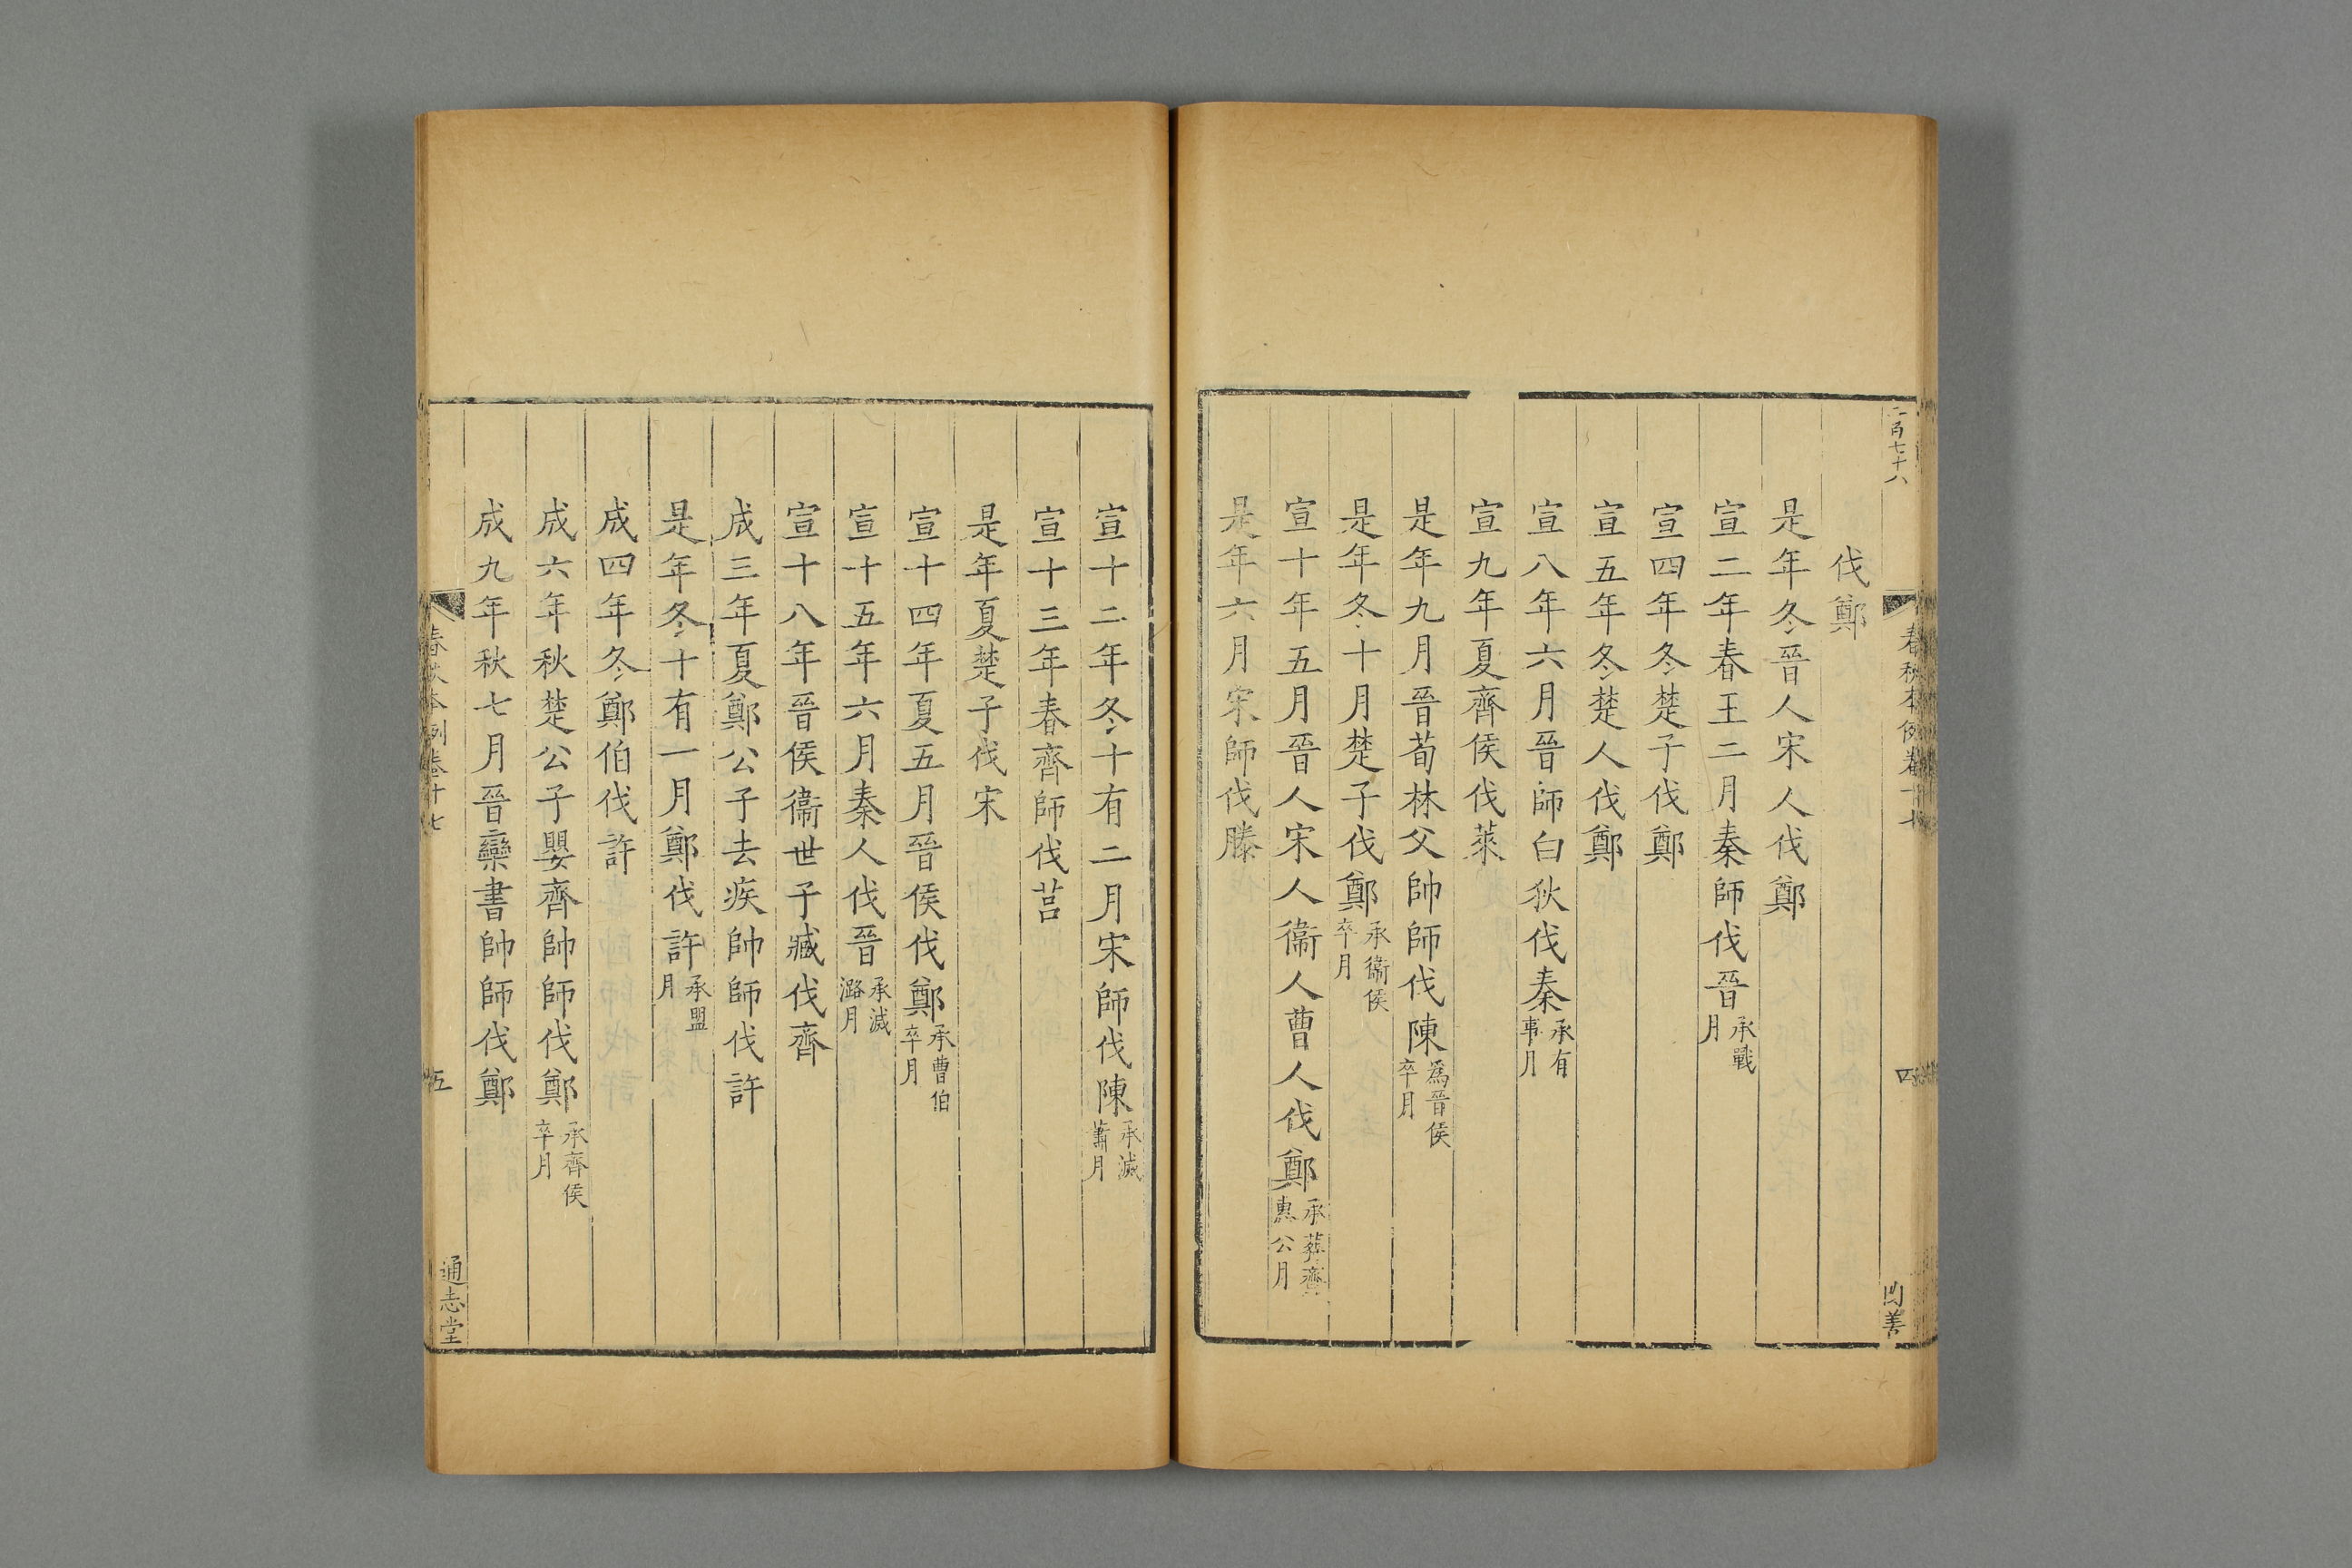 二百七十六
春秋本例卷十七
四
伐鄭
是年冬晉人宋人伐鄭
宣二年春王二月秦師伐晉承戰月
宣四年冬楚子伐鄭
宣五年冬楚人伐鄭
宣八年六月晉師白狄伐秦承有事月
宣九年夏齊侯伐萊
是年九月晉荀林父帥師伐陳爲晉侯卒月
是年冬十月楚子伐鄭承衞侯卒月
宣十年五月晉人宋人衞人曹人伐鄭承葬齊惠公月
是年六月宋師伐滕
宣十二年冬十有二月宋師伐陳承滅蕭月
宣十三年春齊師伐莒
是年夏楚子伐宋
宣十四年夏五月晉侯伐鄭承曹伯卒月
宣十五年六月秦人伐晉承滅潞月
宣十八年晉侯衞世子臧伐齊
成三年夏鄭公子去疾帥師伐許
是年冬十有一月鄭伐許承盟月
成四年冬鄭伯伐許
成六年秋楚公子嬰齊帥師伐鄭承齊侯卒月
成九年秋七月晉欒書帥師伐鄭
春秋本例卷十七
五
通志堂